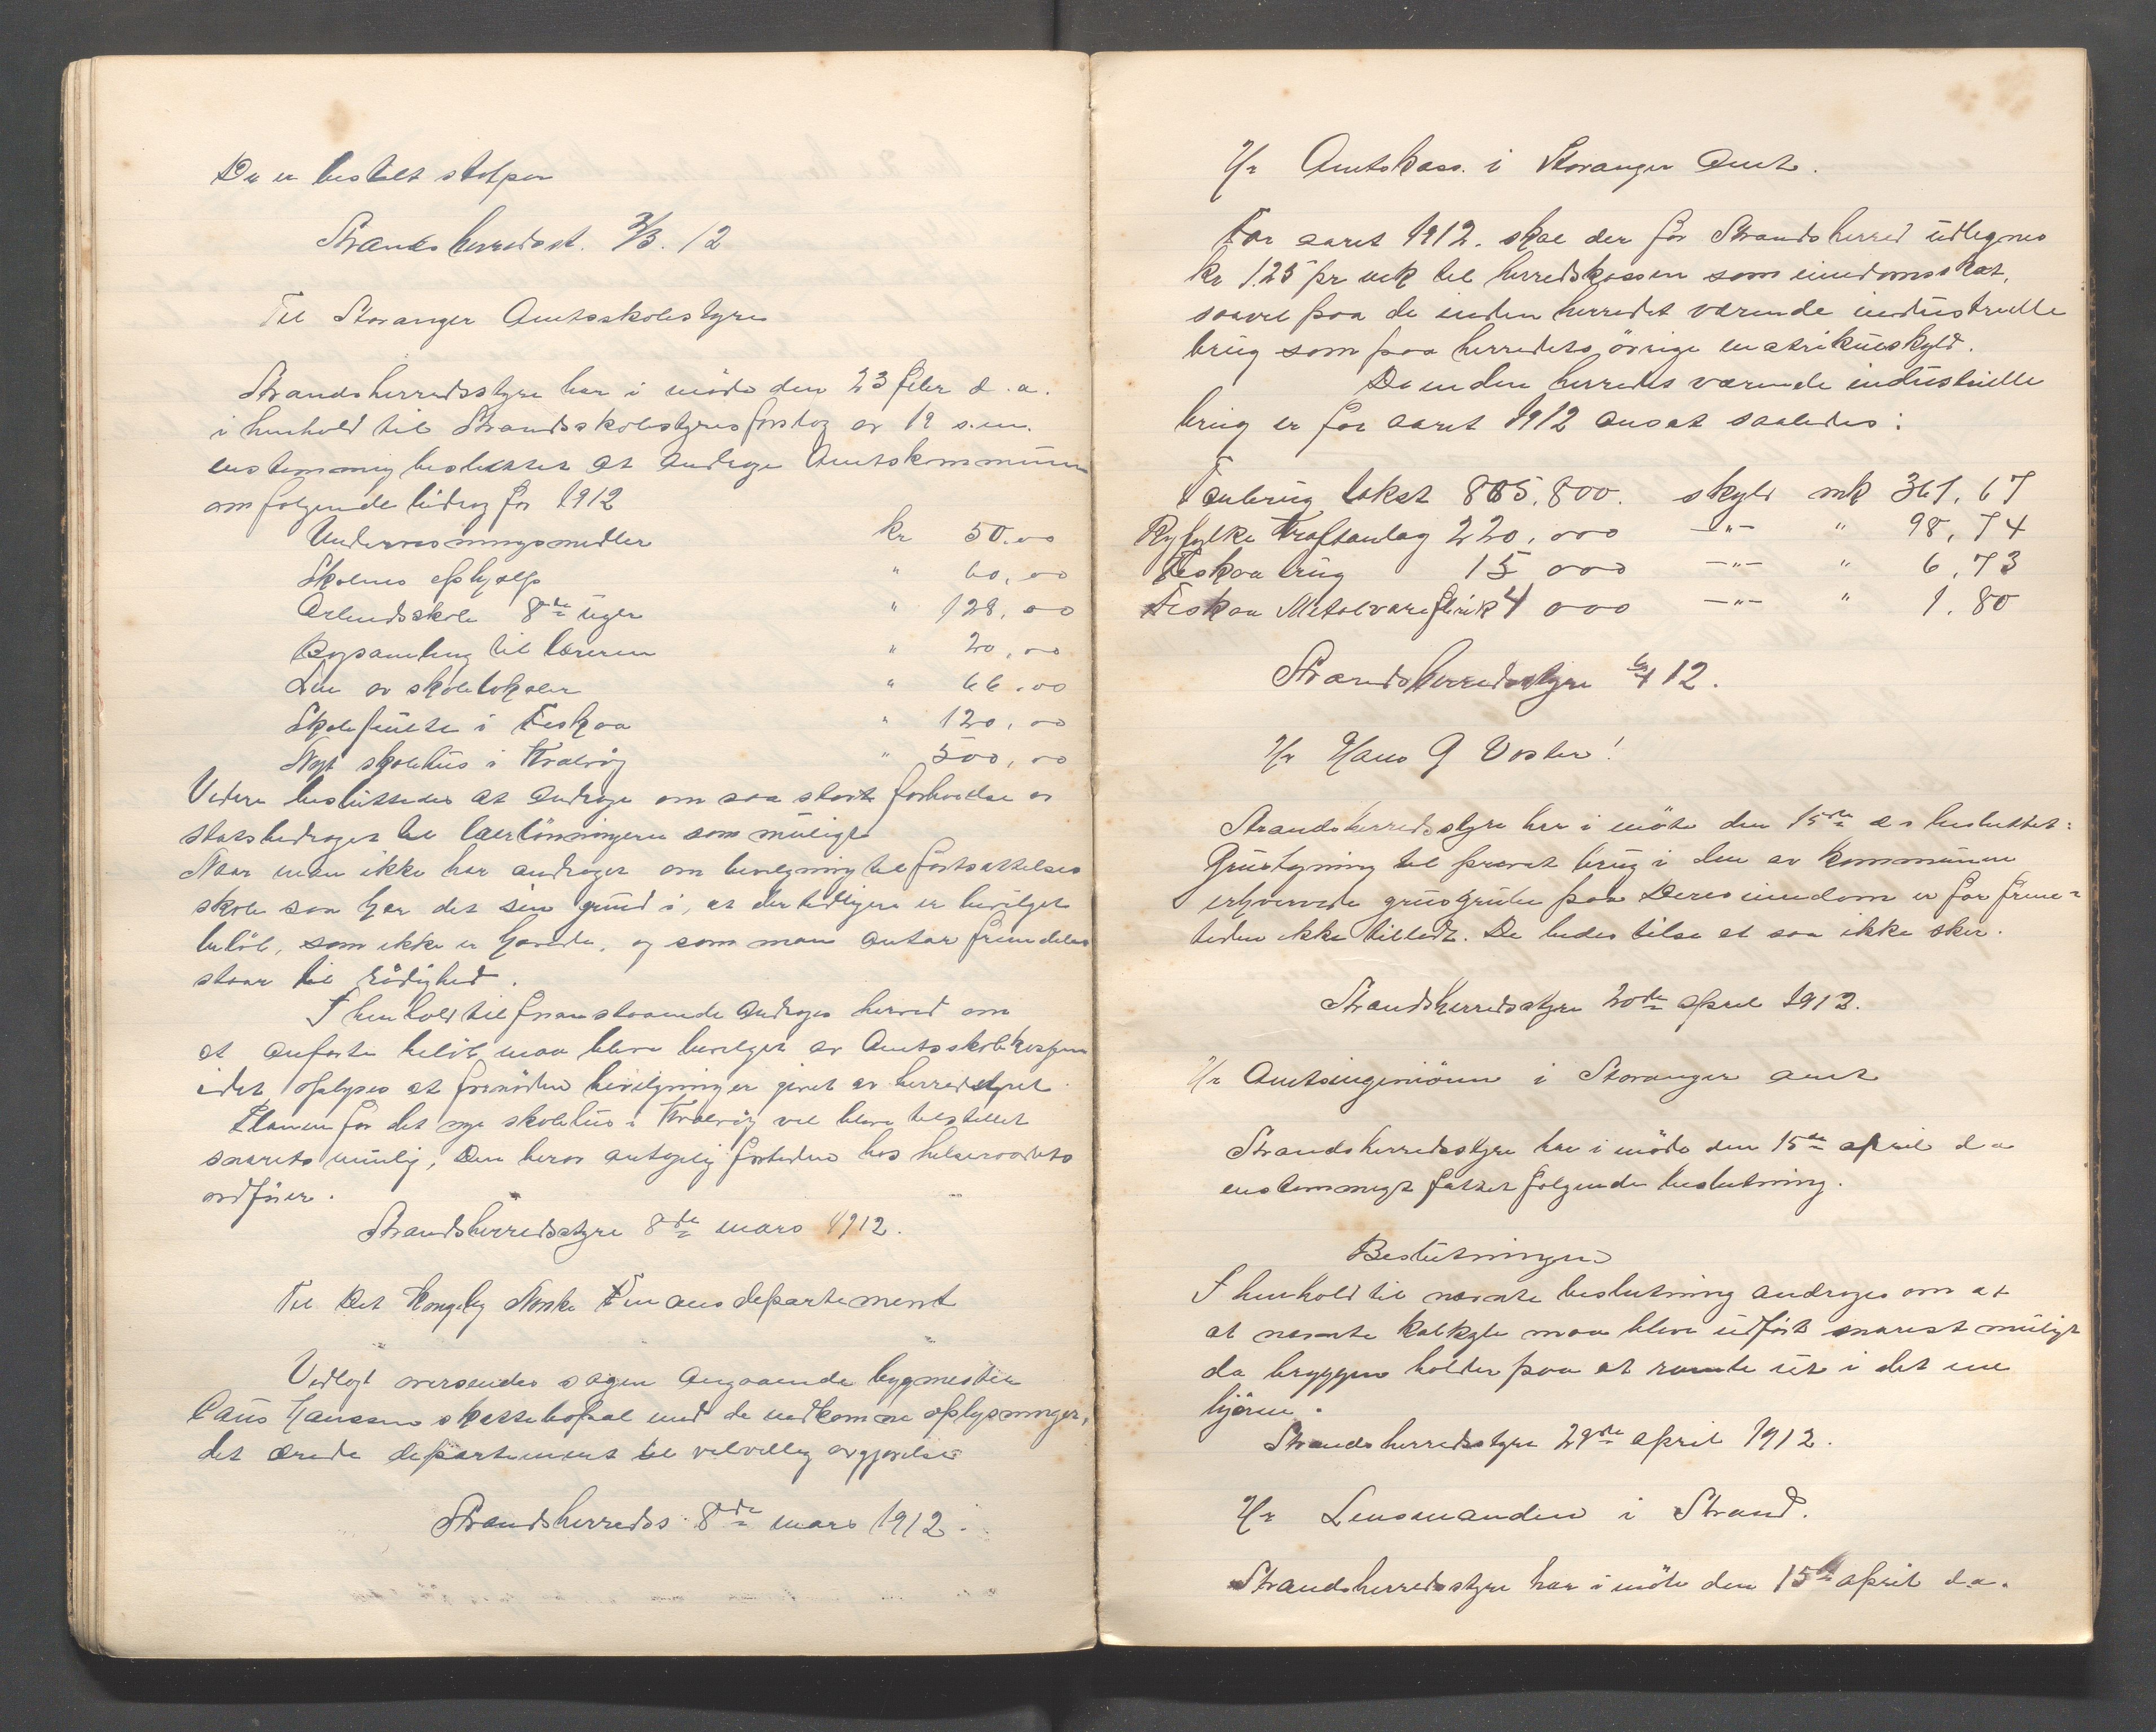 De er bestilt stolper
Strands herredst. 3/3. 12
Til Stavanger Amtsskolestyre
Strandsherredsstyre har i möde den 23 febr d.a.
i henhold til Strandsskolestyres forslag av 19 s.m.
enstemmig besluttet at andrage Amtskommunen
om følgende bidrag for 1912
Undervisningsmidler kr 50.00
Skolens ophjælp " 60,00
Arbeidsskole 8de uger " 128,00
Bogsamling til læreren " 20,00
Leie av skolelokaler " 66.00
Skolefuilte i Fiskaa " 120,00
Nyt skolehus i Kvalvåg " 500,00
Videre besluttedes at andrage om saa stort forhøielse av
statsbidraget til lærlönningerne som muligt
Naar man ikke har andraget om bevilgning til fortsættelses
skole saa har det sin grund i, at der tidligere er bevilget
belöb, som ikke er hævede, og som man antar fremdeles
staar til rådighed.
I henhold til foranstaaende andrages herved om
at anførte belöb maa blive bevilget av Amtsskolekassen
idet oplyses at fornödne bevilgninger er givet av herredstyret
Planen for det nye skolehus i Kvalvåg vil blive tilstillet
snarest mulig, Den beror antagelig fortiden hos helseraadets
ordfører.
Strandsherredsstyre 8de mars 1912.
Til Det Kongelig Norske Finansdepartement
Vedlagt oversendes sagen angaaende bygmester
Claus Hanssens skattebopæl med de indkomne oplysninger,
det ærede departement til velvillig avgjørelse
Strandsherreds 8de mars 1912.
Hr Amtskass. i Stavanger Amt.
For aaret 1912. skal der for Strands herred udlignes
kr 1.25 pr mk til herredskassen som eiendomsskat,
saavel paa de inden herredet værende industrielle
brug som paa herredets övrige matrikulskyld.
De inden herredet værende industrielle
brug er for aaret 1912 ansat saaledes:
Taubrug takst 805.800. skyld mk 361.67
Ryfylke Kraftanlag 220.000 —"— " 98,74
Fiskaa brug 15 000 —"— " 6,73
Fiskaa Metalvarefabrik 4 000 —"— " 1.80
Strandsherredsstyre 12.
Hr Hans G Voster!
Strandsherredsstyre har i möte den 15de ds besluttet:
Grustagning til privat brug i den av kommunen
erhvervede grusgrube paa Deres eiendom er for frem-
tiden ikke tilladt. De bedes tilse at saa ikke sker.
Strandsherredsstyre 20de april 1912.
Hr Amtsingeniören i Stavanger amt
Strandsherredsstyre har i möde den 15de april d a
enstemmigt fattet følgende beslutning.
Beslutningen
I henhold til nævnte beslutning andrages om at
at nævnte kalkyle maa blive udfört snarest muligt
da bryggen holder paa at ramle ut i det ene
hjörne.
Strandsherredsstyre 29de april 1912.
Hr Lensmanden i Strand.
Strandsherredsstyre har i möte den 15de april d.a.